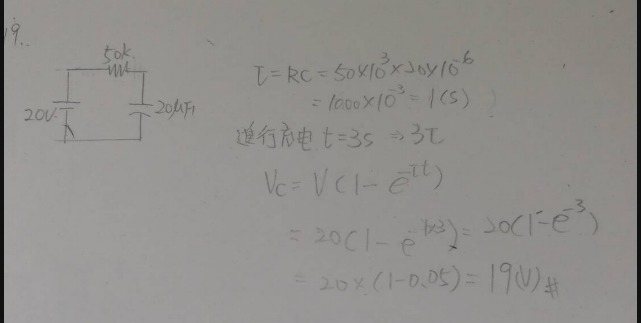 19.
50k
20V
20μF
τ = RC = 50×10³×20×10⁻⁶
= 1000×10⁻³ = 1(s)
進行充电 t=3s ⇒ 3τ
Vc = V(1 - e^-τt)
= 20(1 - e^-1×3) = 20(1 - e⁻³)
= 20×(1-0.05) = 19(V)#